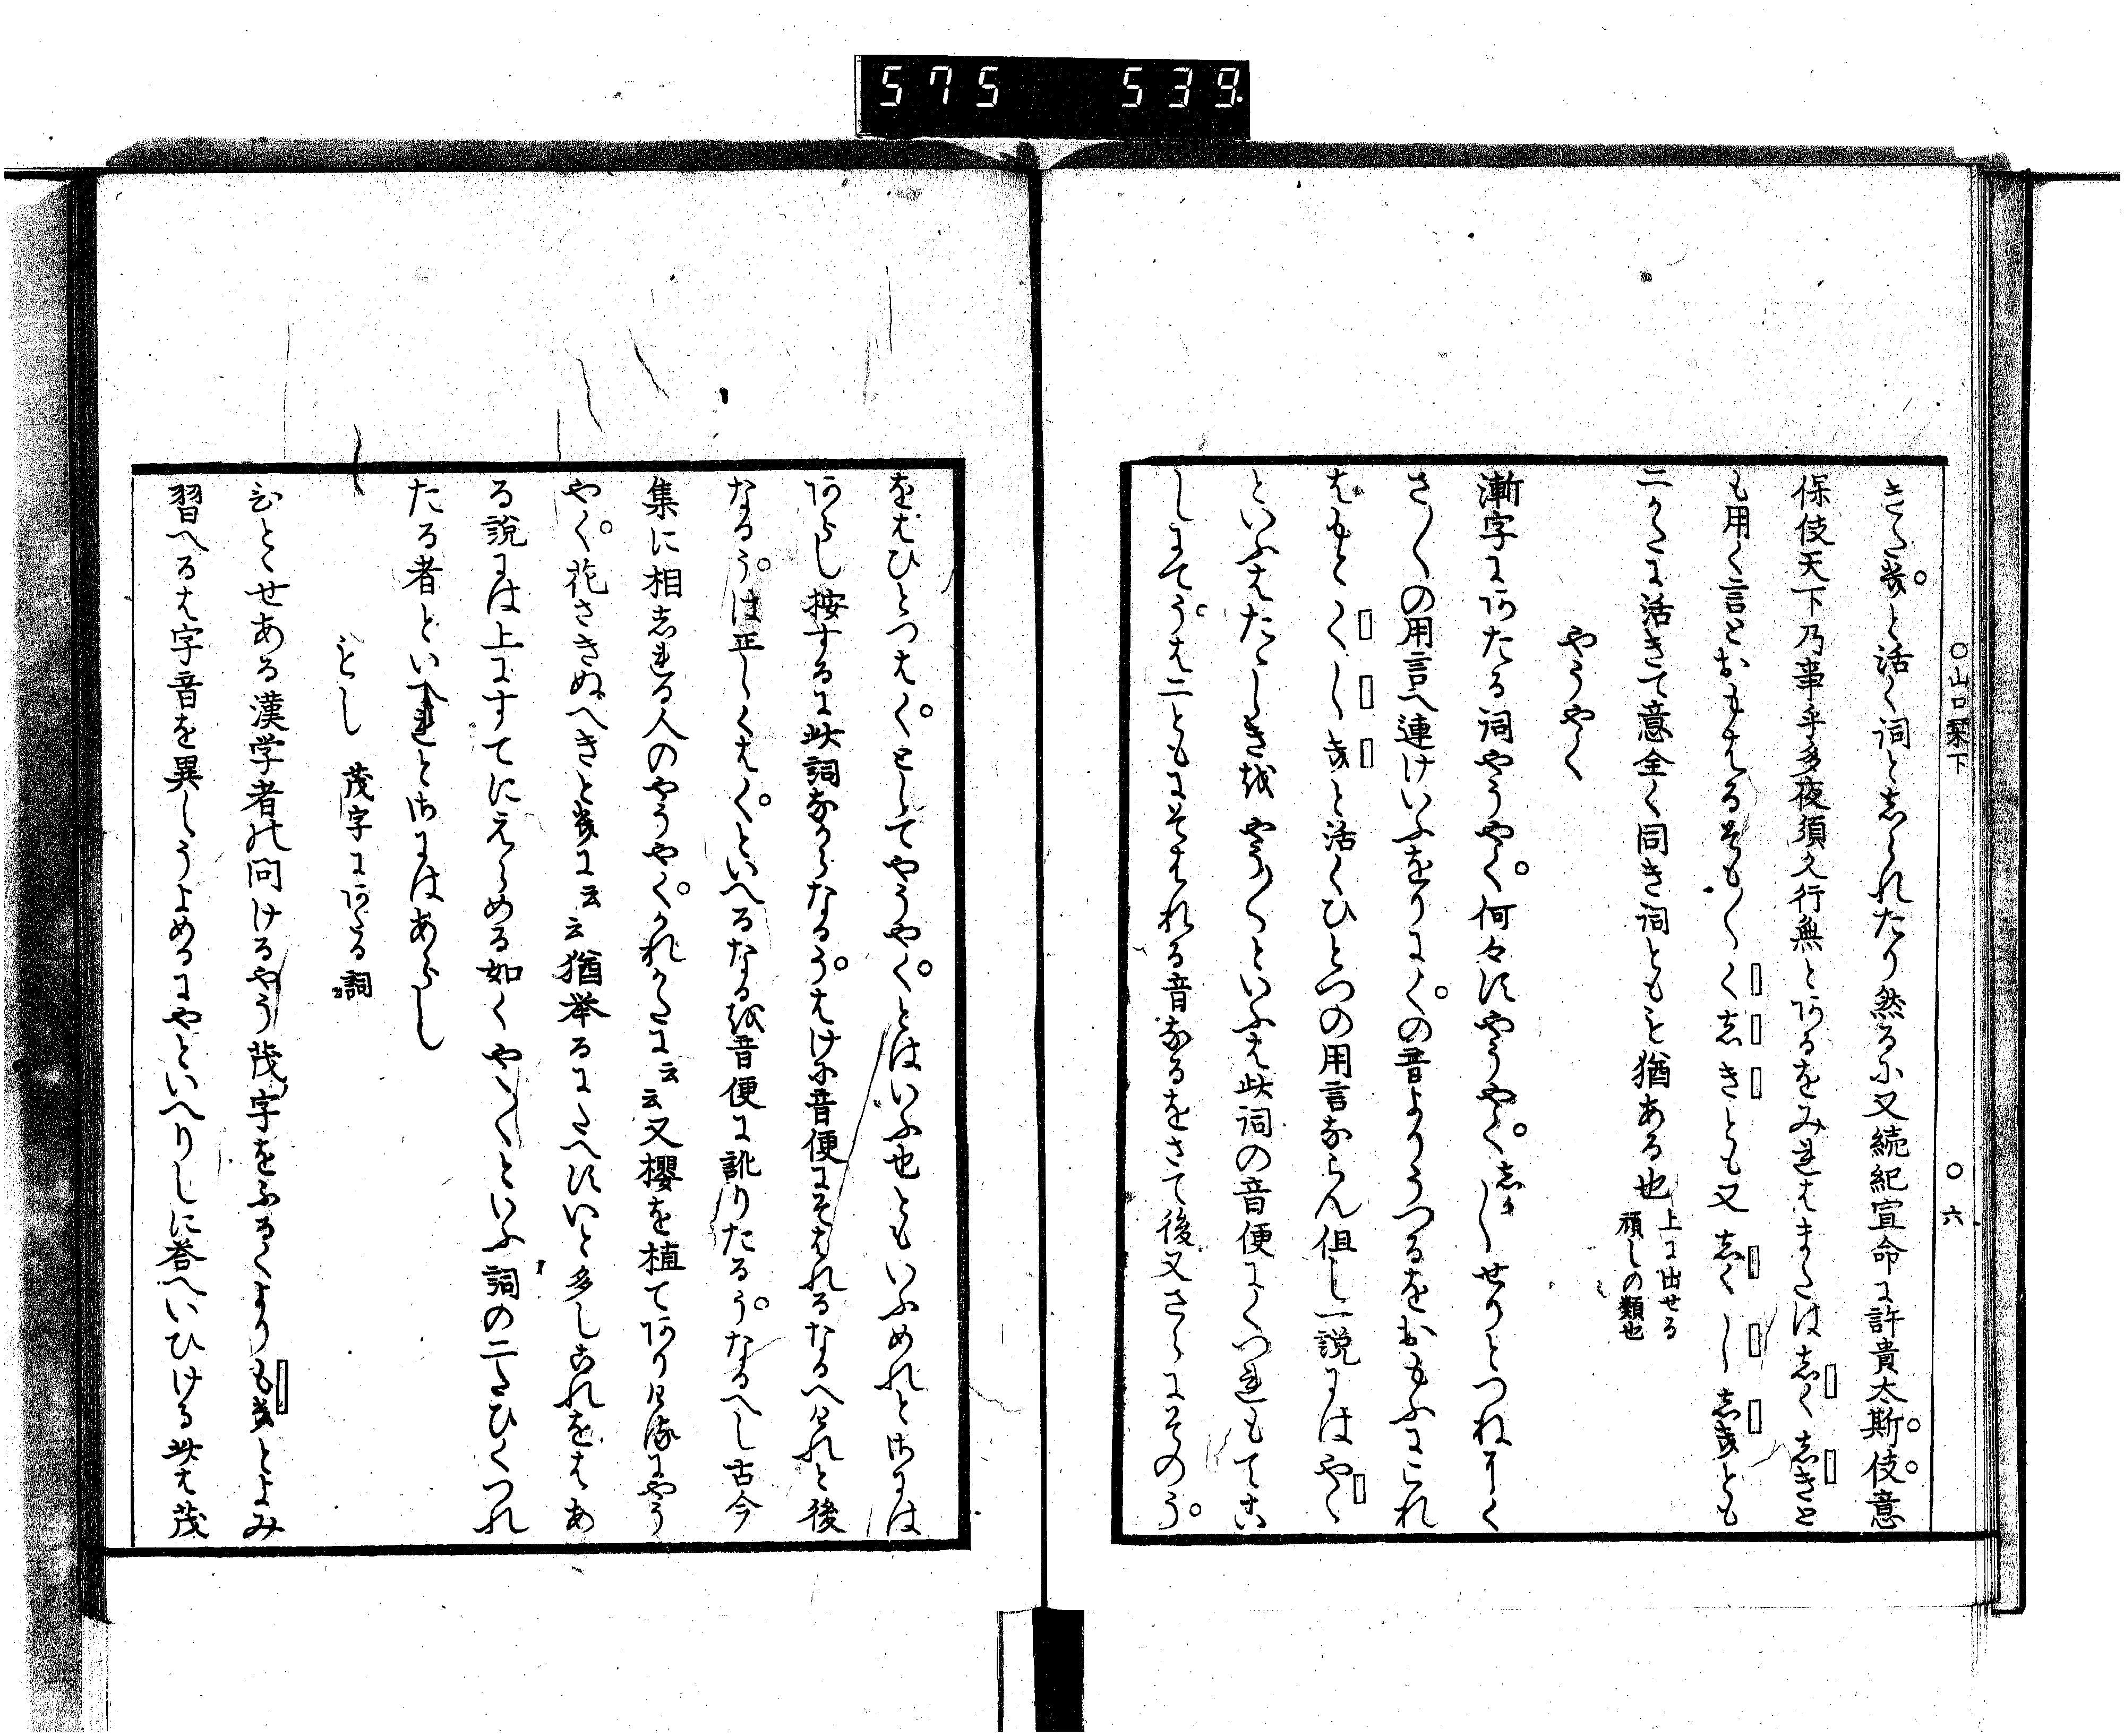 575 539
○山口栞下 ○六
きたきと活く詞としられたり然るに又続紀宣命に許貴太斯伎意
保伎天下乃事乎多夜須久行無とあるをみれはまたはしくしきと
も用く言とおもはるそも〳〵くしきとも又しくししきとも
二かたに活きて意全く同き詞ともも猶ある也
上に出せる
頑しの類也
やうやく
漸字にあたる詞やうやく何々にやうやくしか〳〵せりとつねにかく
さま〳〵の用言へ連けいふをりにくの音よりうつるをおもふにこれ
はもとくしきと活くひとつの用言ならん但し一説にはやく
といふはたゝしきをやう〳〵といふは此詞の音便にくつれもてこ
しにてうは二ともにそはれる音なるをさて後又さらにそのう
をはひとつはくとしてやうやくとはいふ也ともいふめれとさには
あらし按するに此詞なからなるうはけに音便にそはれるなるへけれと後
なるうは正しくはくといへるなるを音便に訛りたるうなるへし古今
集に相しれる人のやうやくかれかたに云云又櫻を植てありけるにやう
やく花さきぬへきときに云云猶挙るにたへすいと多しこれをはあ
る説には上にすてにえらめる如くやくといふ詞の二たひくつれ
たる者といへれとさにはあらし
もし 茂字にあたる詞
ひとゝせある漢学者の問けるやう茂字をふるくよりもきとよみ
習へるは字音を異しうよめるにやといへりしに答へいひける此は茂